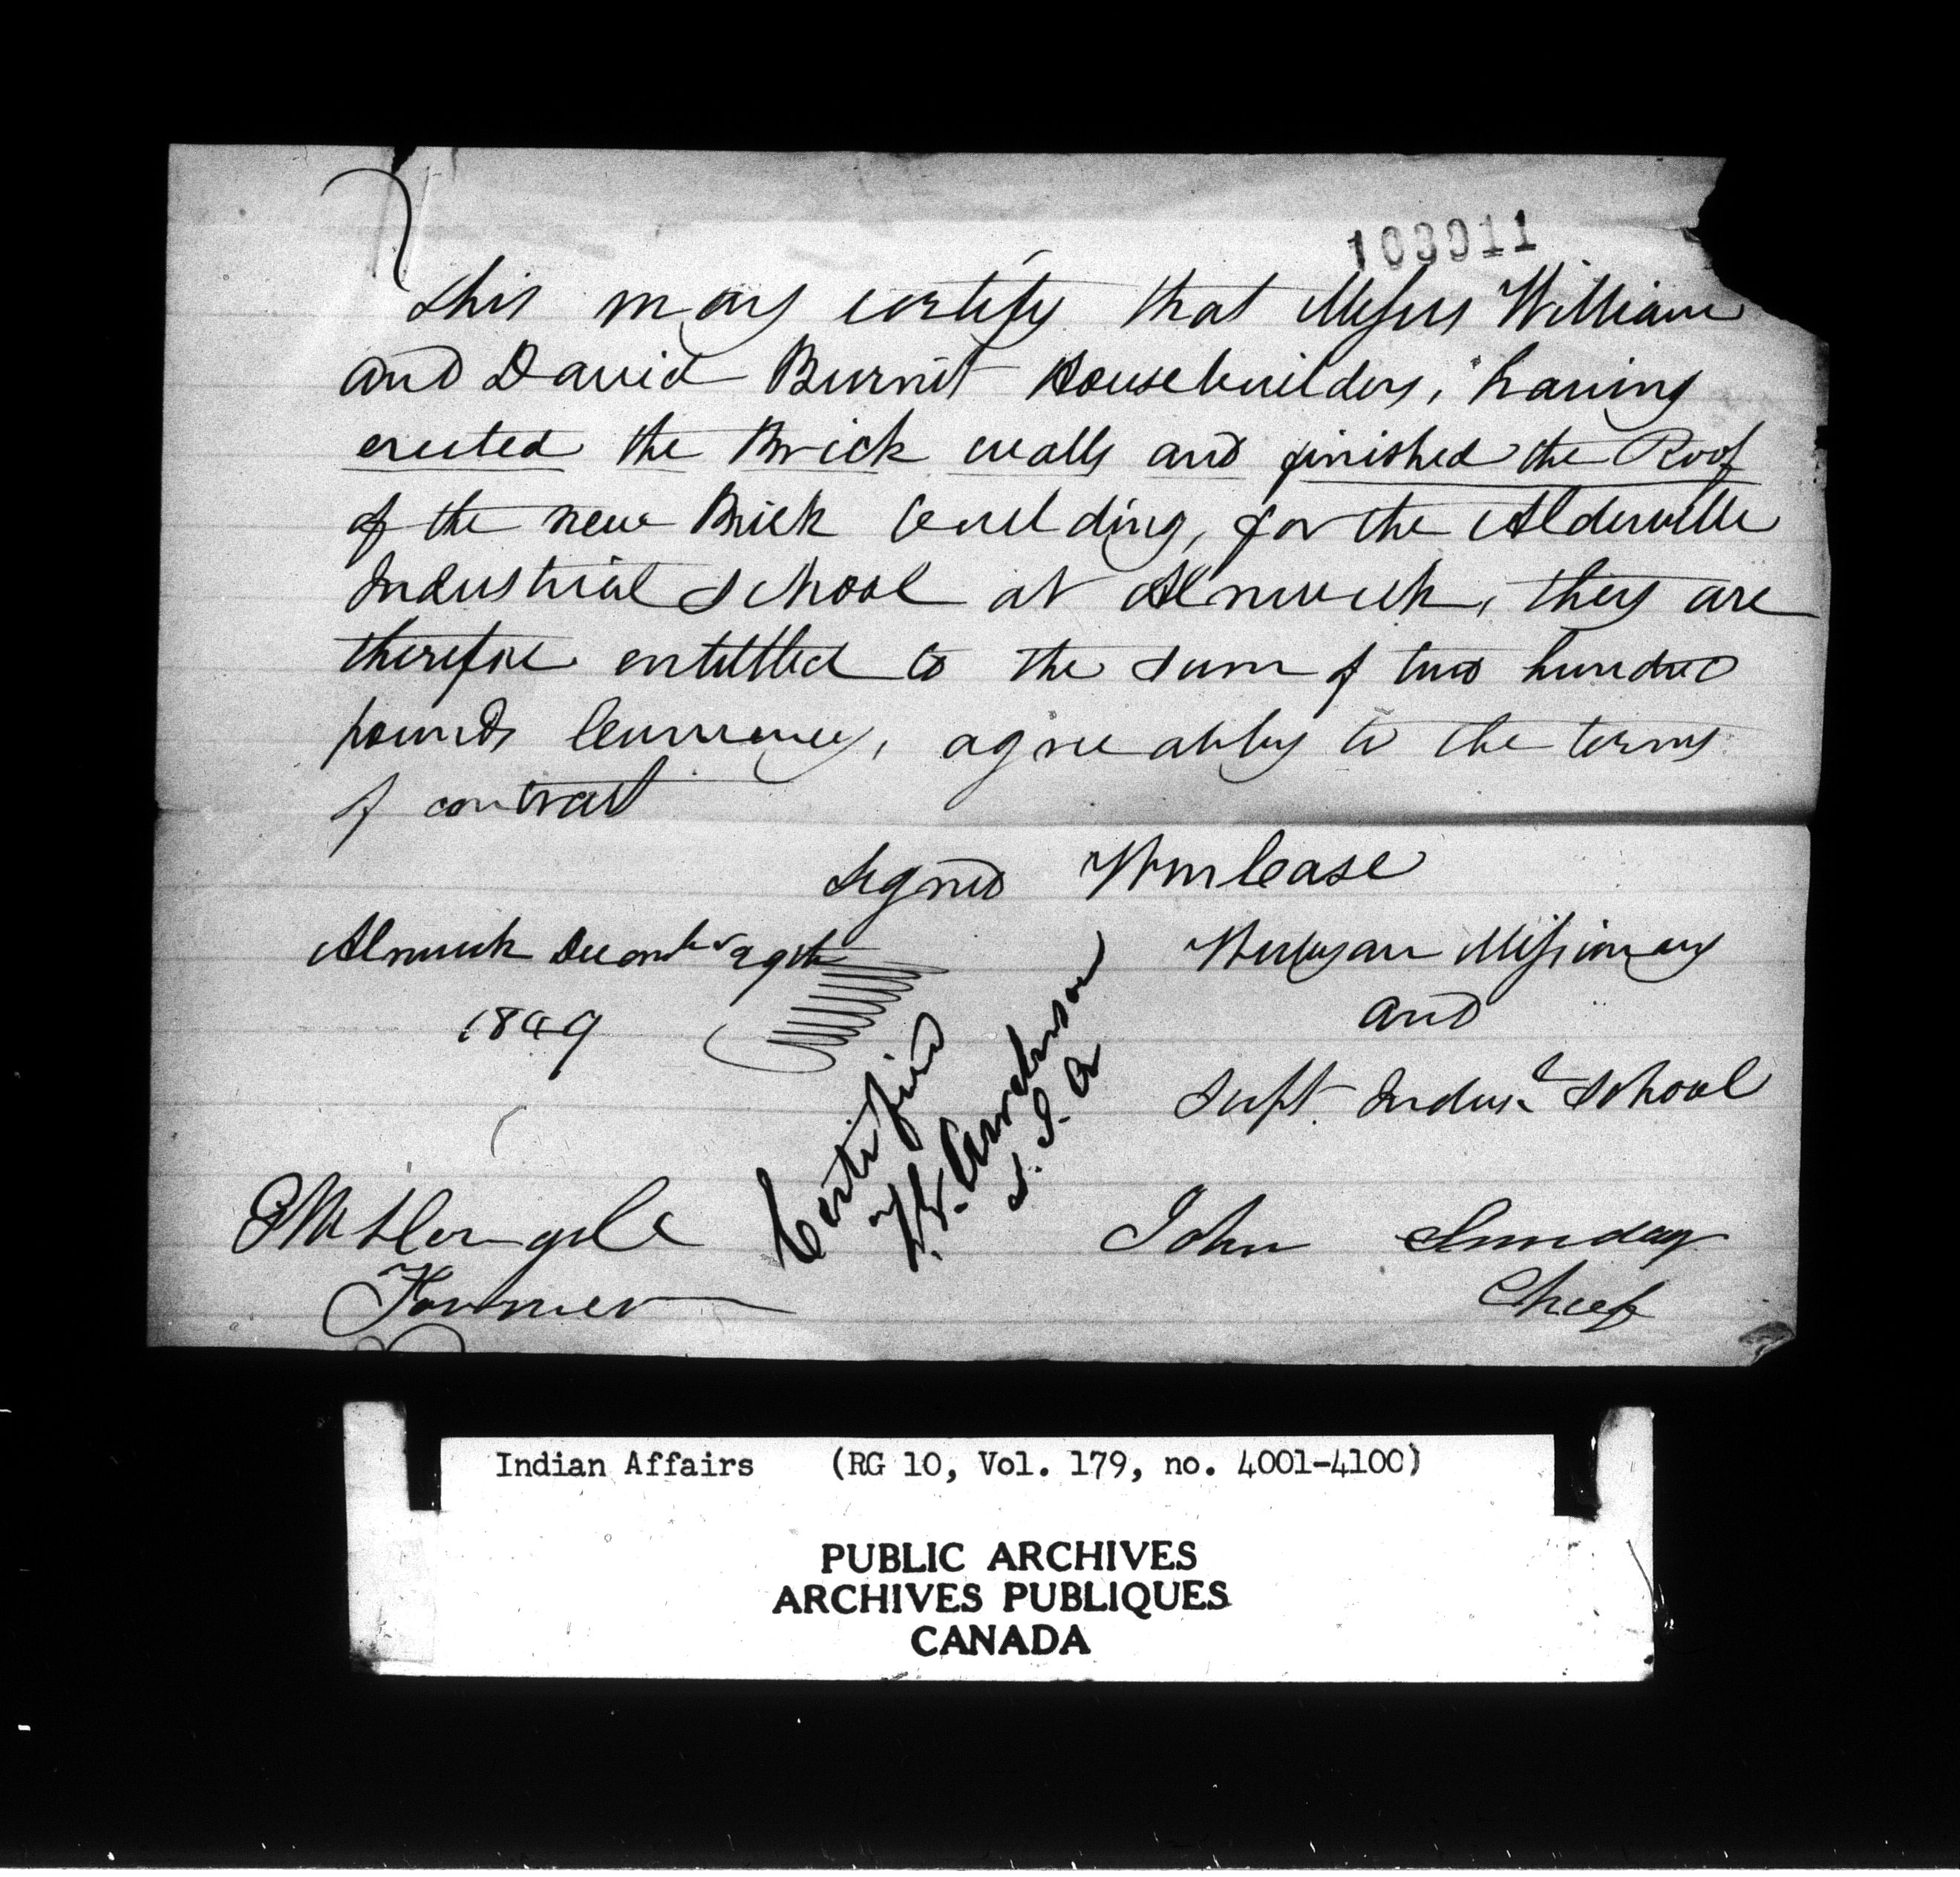 103911
This may certify that Messrs William
and David Burnit Housebuilders, having
erected the Brick walls and finished the Roof
of the new Brick building, for the Alderville
Industrial School at Alnwick, they are
therefore entittled to the sum of two hundred
pounds Currency, agreeably to the terms
of contract
Signed Wm Case
Wesleyan Missionary
and
Supt. Indusl School
Alnwick Decembr 29th
1849
Certified
T. G. Anderson
S. I. A
Farmer
John Sunday
Chief
Indian Affairs (RG 10, Vol. 179, no. 4001-4100)
PUBLIC ARCHIVES
ARCHIVES PUBLIQUES
CANADA